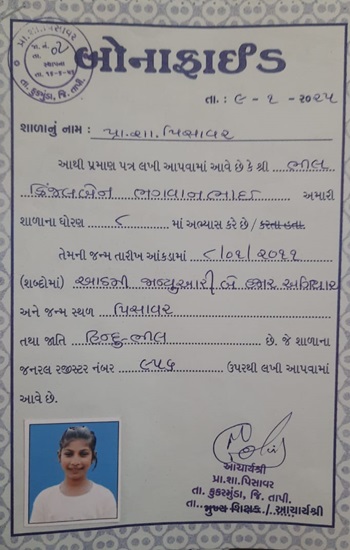 પ્રા.શા.પિસાવર
તા. કુકરમુંડા, જિ. તાપી.
બોનાફાઈડ
તા.: ૯-૧-૨૦૨૫
શાળાનું નામ : પ્રા.શા. પિસાવર
આથી પ્રમાણ પત્ર લખી આપવામાં આવે છે કે શ્રી ભીલ
કિંજલબેન ભગવાનભાઈ અમારી
શાળાના ધોરણ ૮ માં અભ્યાસ કરે છે / કરતા હતા.
તેમની જન્મ તારીખ આંકડામાં ૮/૦૧/૨૦૧૧
(શબ્દોમાં) આઠમી જાન્યુઆરી બે હજાર અગિયાર
અને જન્મ સ્થળ પિસાવર
તથા જાતિ હિન્દુ-ભીલ છે. જે શાળાના
જનરલ રજીસ્ટર નંબર ૯૫૬ ઉપરથી લખી આપવામાં
આવે છે.
આચાર્યશ્રી
પ્રા.શા.પિસાવર
તા. કુકરમુંડા, જિ. તાપી.
તા.. મુખ્ય શિક્ષક / આચાર્યશ્રી